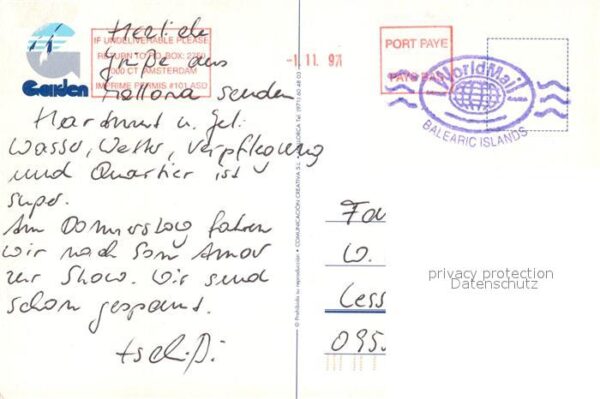 Herzliche
Grüße aus
Mallorca senden
Hartmut u. Gel.
Wasser, Wetter, Verpflegung
und Quartier ist
super.
Am Donnerstag fahren
wir nach Son Amar
zur Show. Wir sind
schon gespannt.
tschüß!
Garden
IF UNDELIVERABLE PLEASE
RETURN TO P.O. BOX: 2750
1000 CT AMSTERDAM
IMPRIME PERMIS #101 ASD
-1.11.97
PORT PAYE
PAYS BAS
WorldMail
BALEARIC ISLANDS
© Prohibida su reproducción • COMUNICACIÓN CREATIVA S.L.
Tel. (971) 60 48 03
Fa
W.
Cess
095
privacy protection
Datenschutz